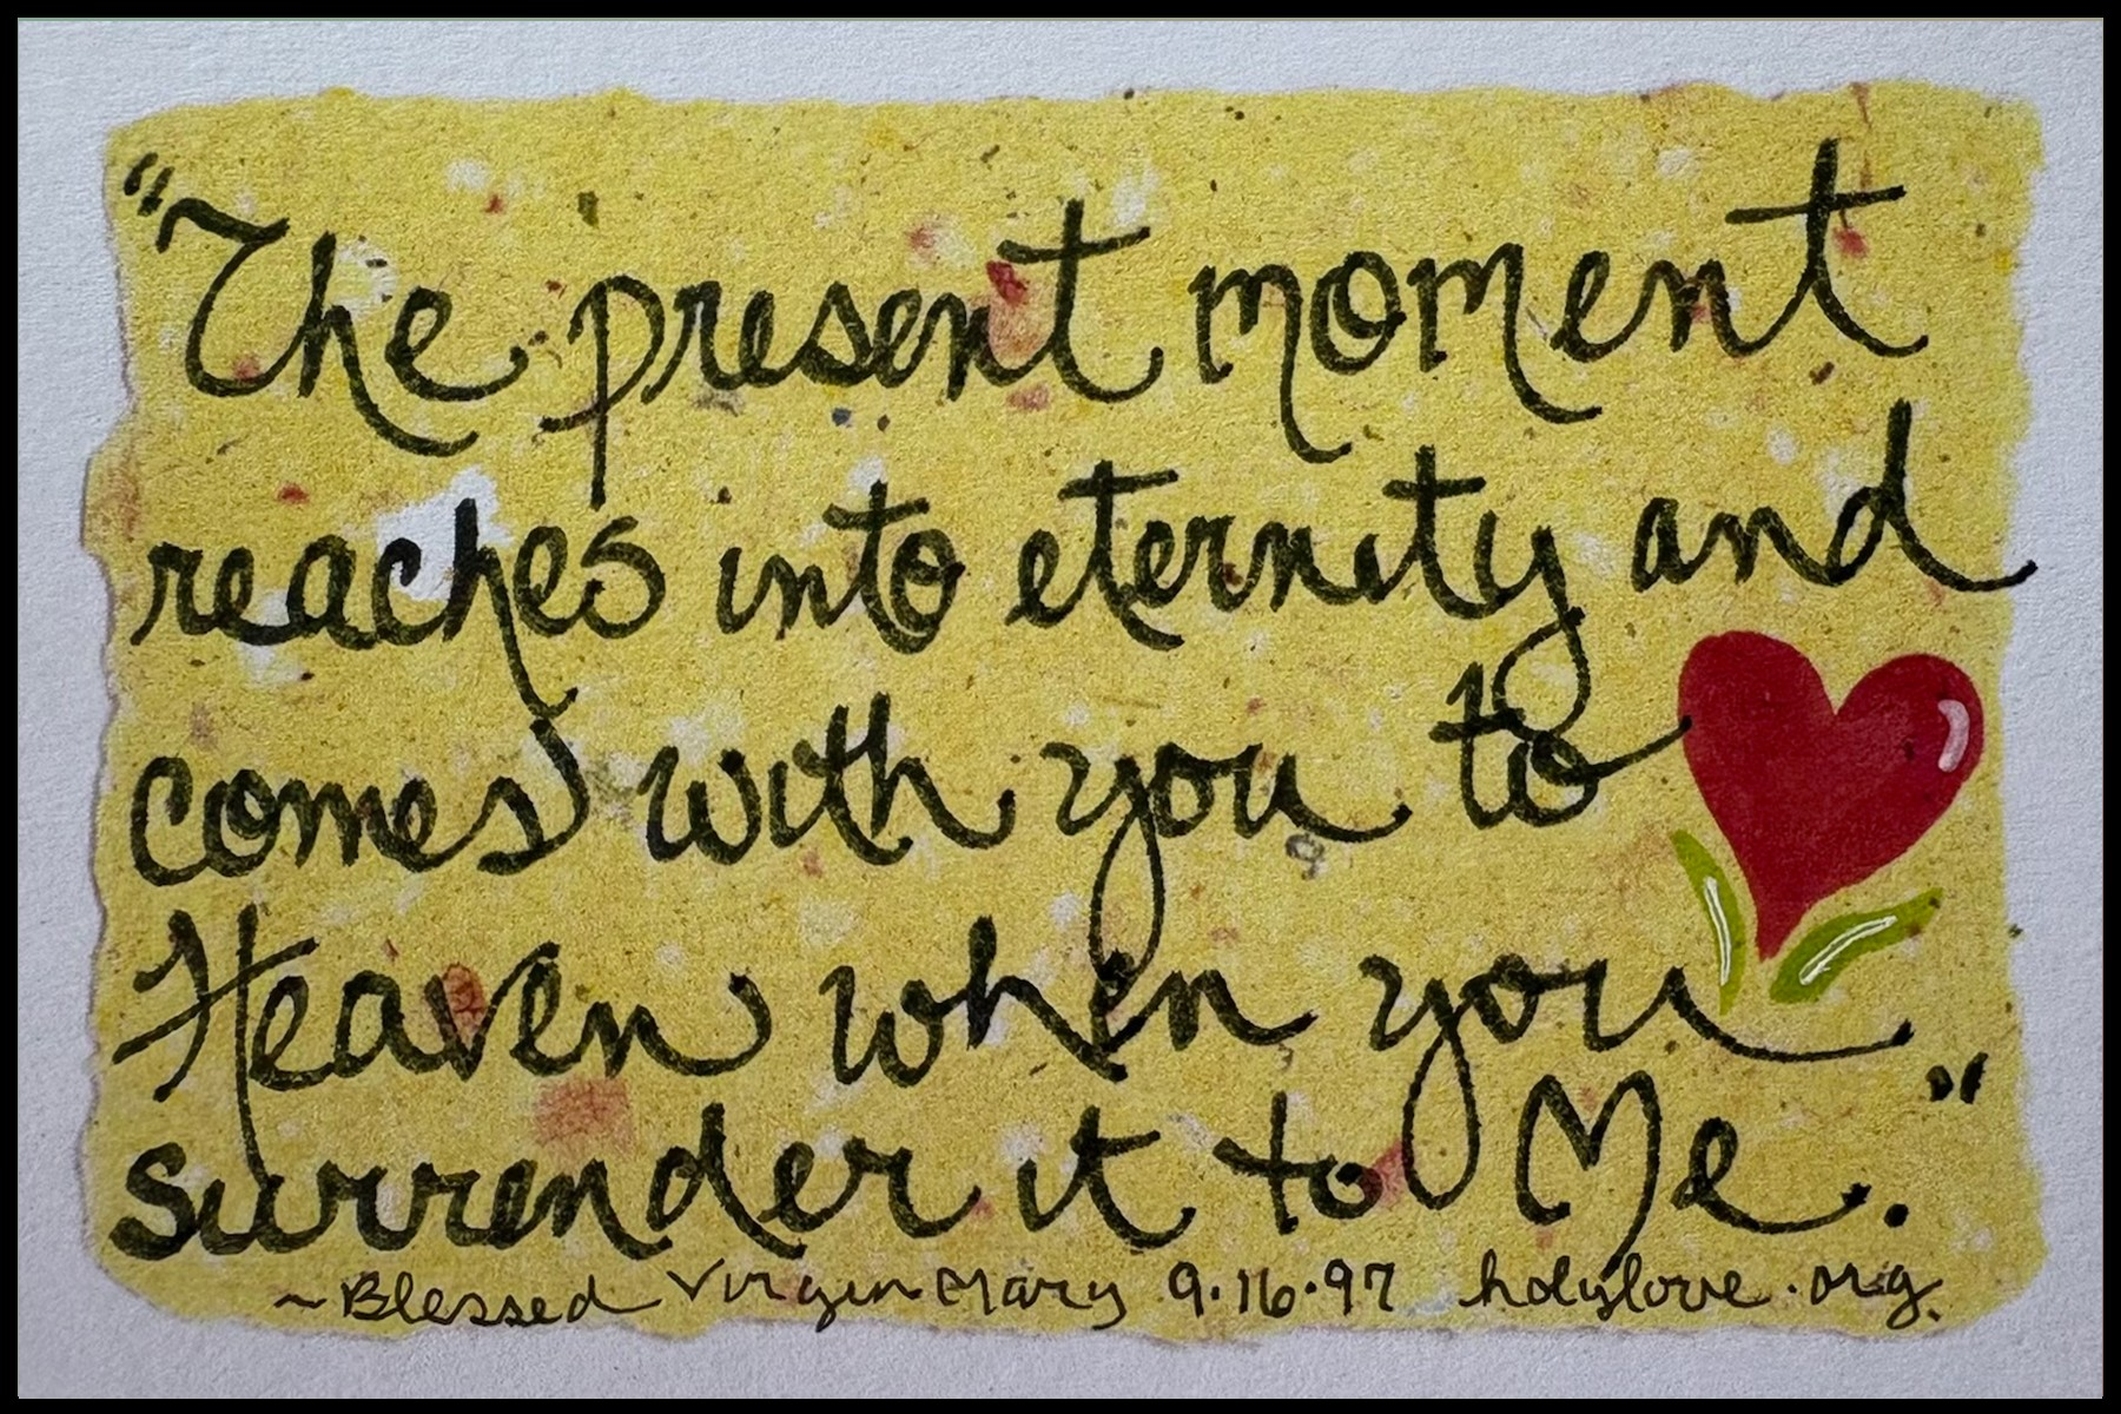 "The present moment
reaches into eternity and
comes with you to
Heaven when you
surrender it to Me."
~Blessed Virgin Mary 9.16.97 holylove.org.